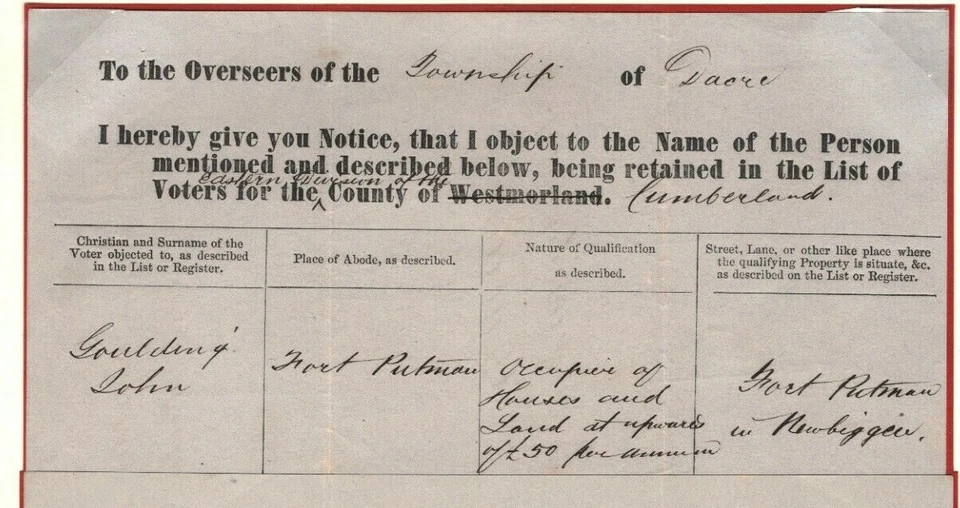 To the Overseers of the Township of Dacre
I hereby give you Notice, that I object to the Name of the Person
mentioned and described below, being retained in the List of
Eastern Division of the
Voters for the ^ County of Westmorland. Cumberland.
Christian and Surname of the
Voter objected to, as described
in the List or Register.
Place of Abode, as described.
Nature of Qualification
as described.
Street, Lane, or other like place where
the qualifying Property is situate, &c.
as described on the List or Register.
Goulding
John
Fort Putman
Occupier of
Houses and
Land at upwards
of £50 per annum
Fort Putman
in Newbiggin.